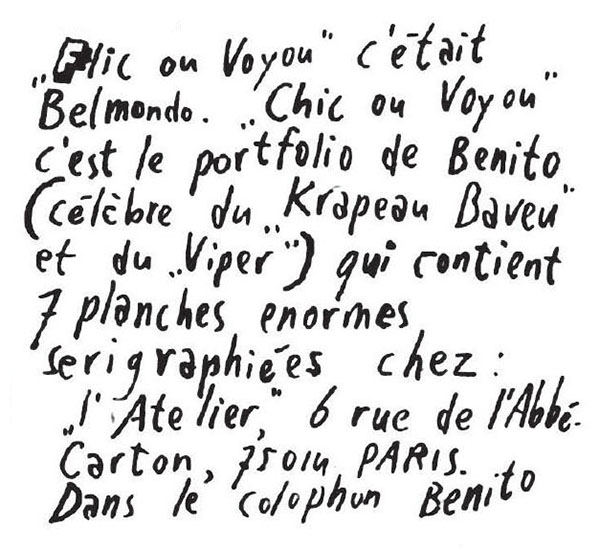 „Flic ou Voyou" c'était
Belmondo. „Chic ou Voyou"
c'est le portfolio de Benito
(célèbre du „Krapeau Baveu"
et du „Viper") qui contient
7 planches enormes
serigraphiées chez :
„l'Atelier," 6 rue de l'Abbé-
Carton, 75014 PARIS.
Dans le colophon Benito